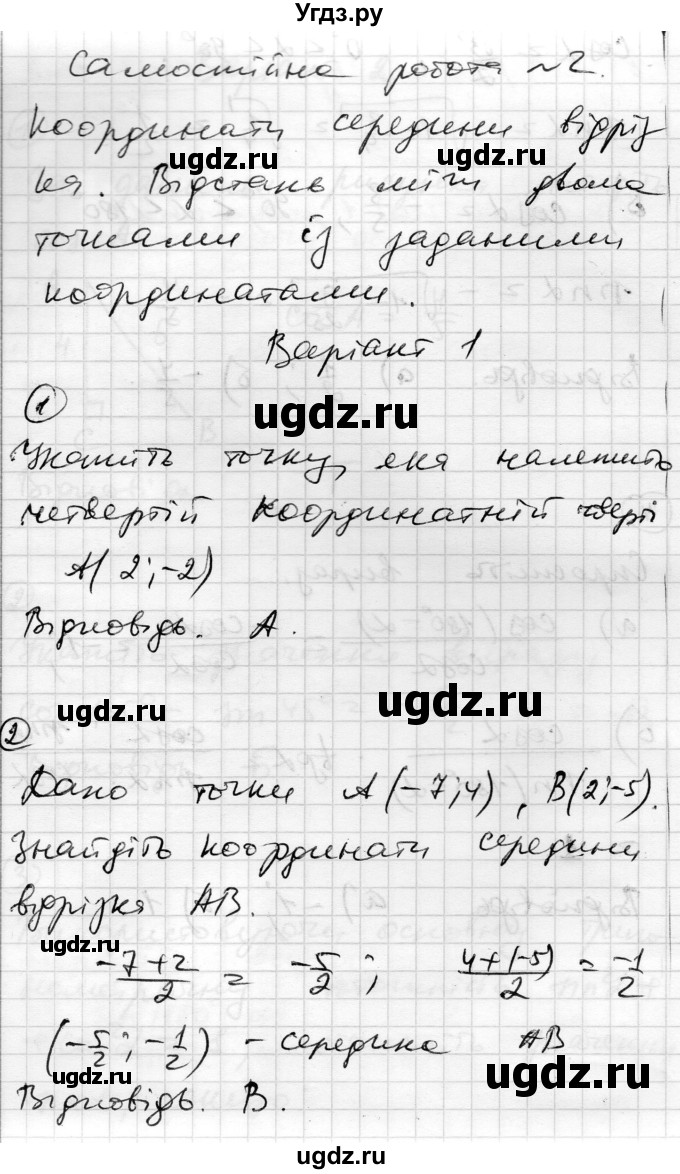 Угдз.ру
Самостійна робота №2.
Координати середини відріз
ка. Відстань між двома
ugdz.ru ugdz.ru
точками із заданими
координатами.
Варіант 1
1
ugdz.ru
Укажіть точку, яка належить
четвертій координатній чверті
A(2;-2)
Відповідь. А.
ugdz.ru ugdz.ru
2
Дано точки A(-7;4), B(2;-5).
Знайдіть координати середини
відрізка AB.
ugdz.ru ugdz.ru
-7+2/2 = -5/2; 4+(-5)/2 = -1/2
(-5/2; -1/2) - середина AB
ugdz.ru ugdz.ru
Відповідь. В.
ugdz.ru